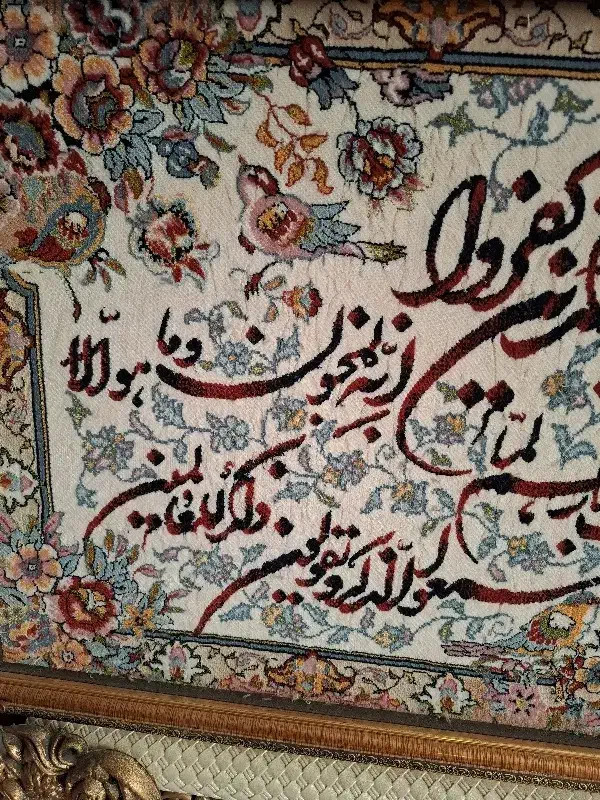 كفروا
لمّا
سمعوا الذّكر و يقولون
انّه لمجنون و ما هو الّا
ذكرٌ للعالمين